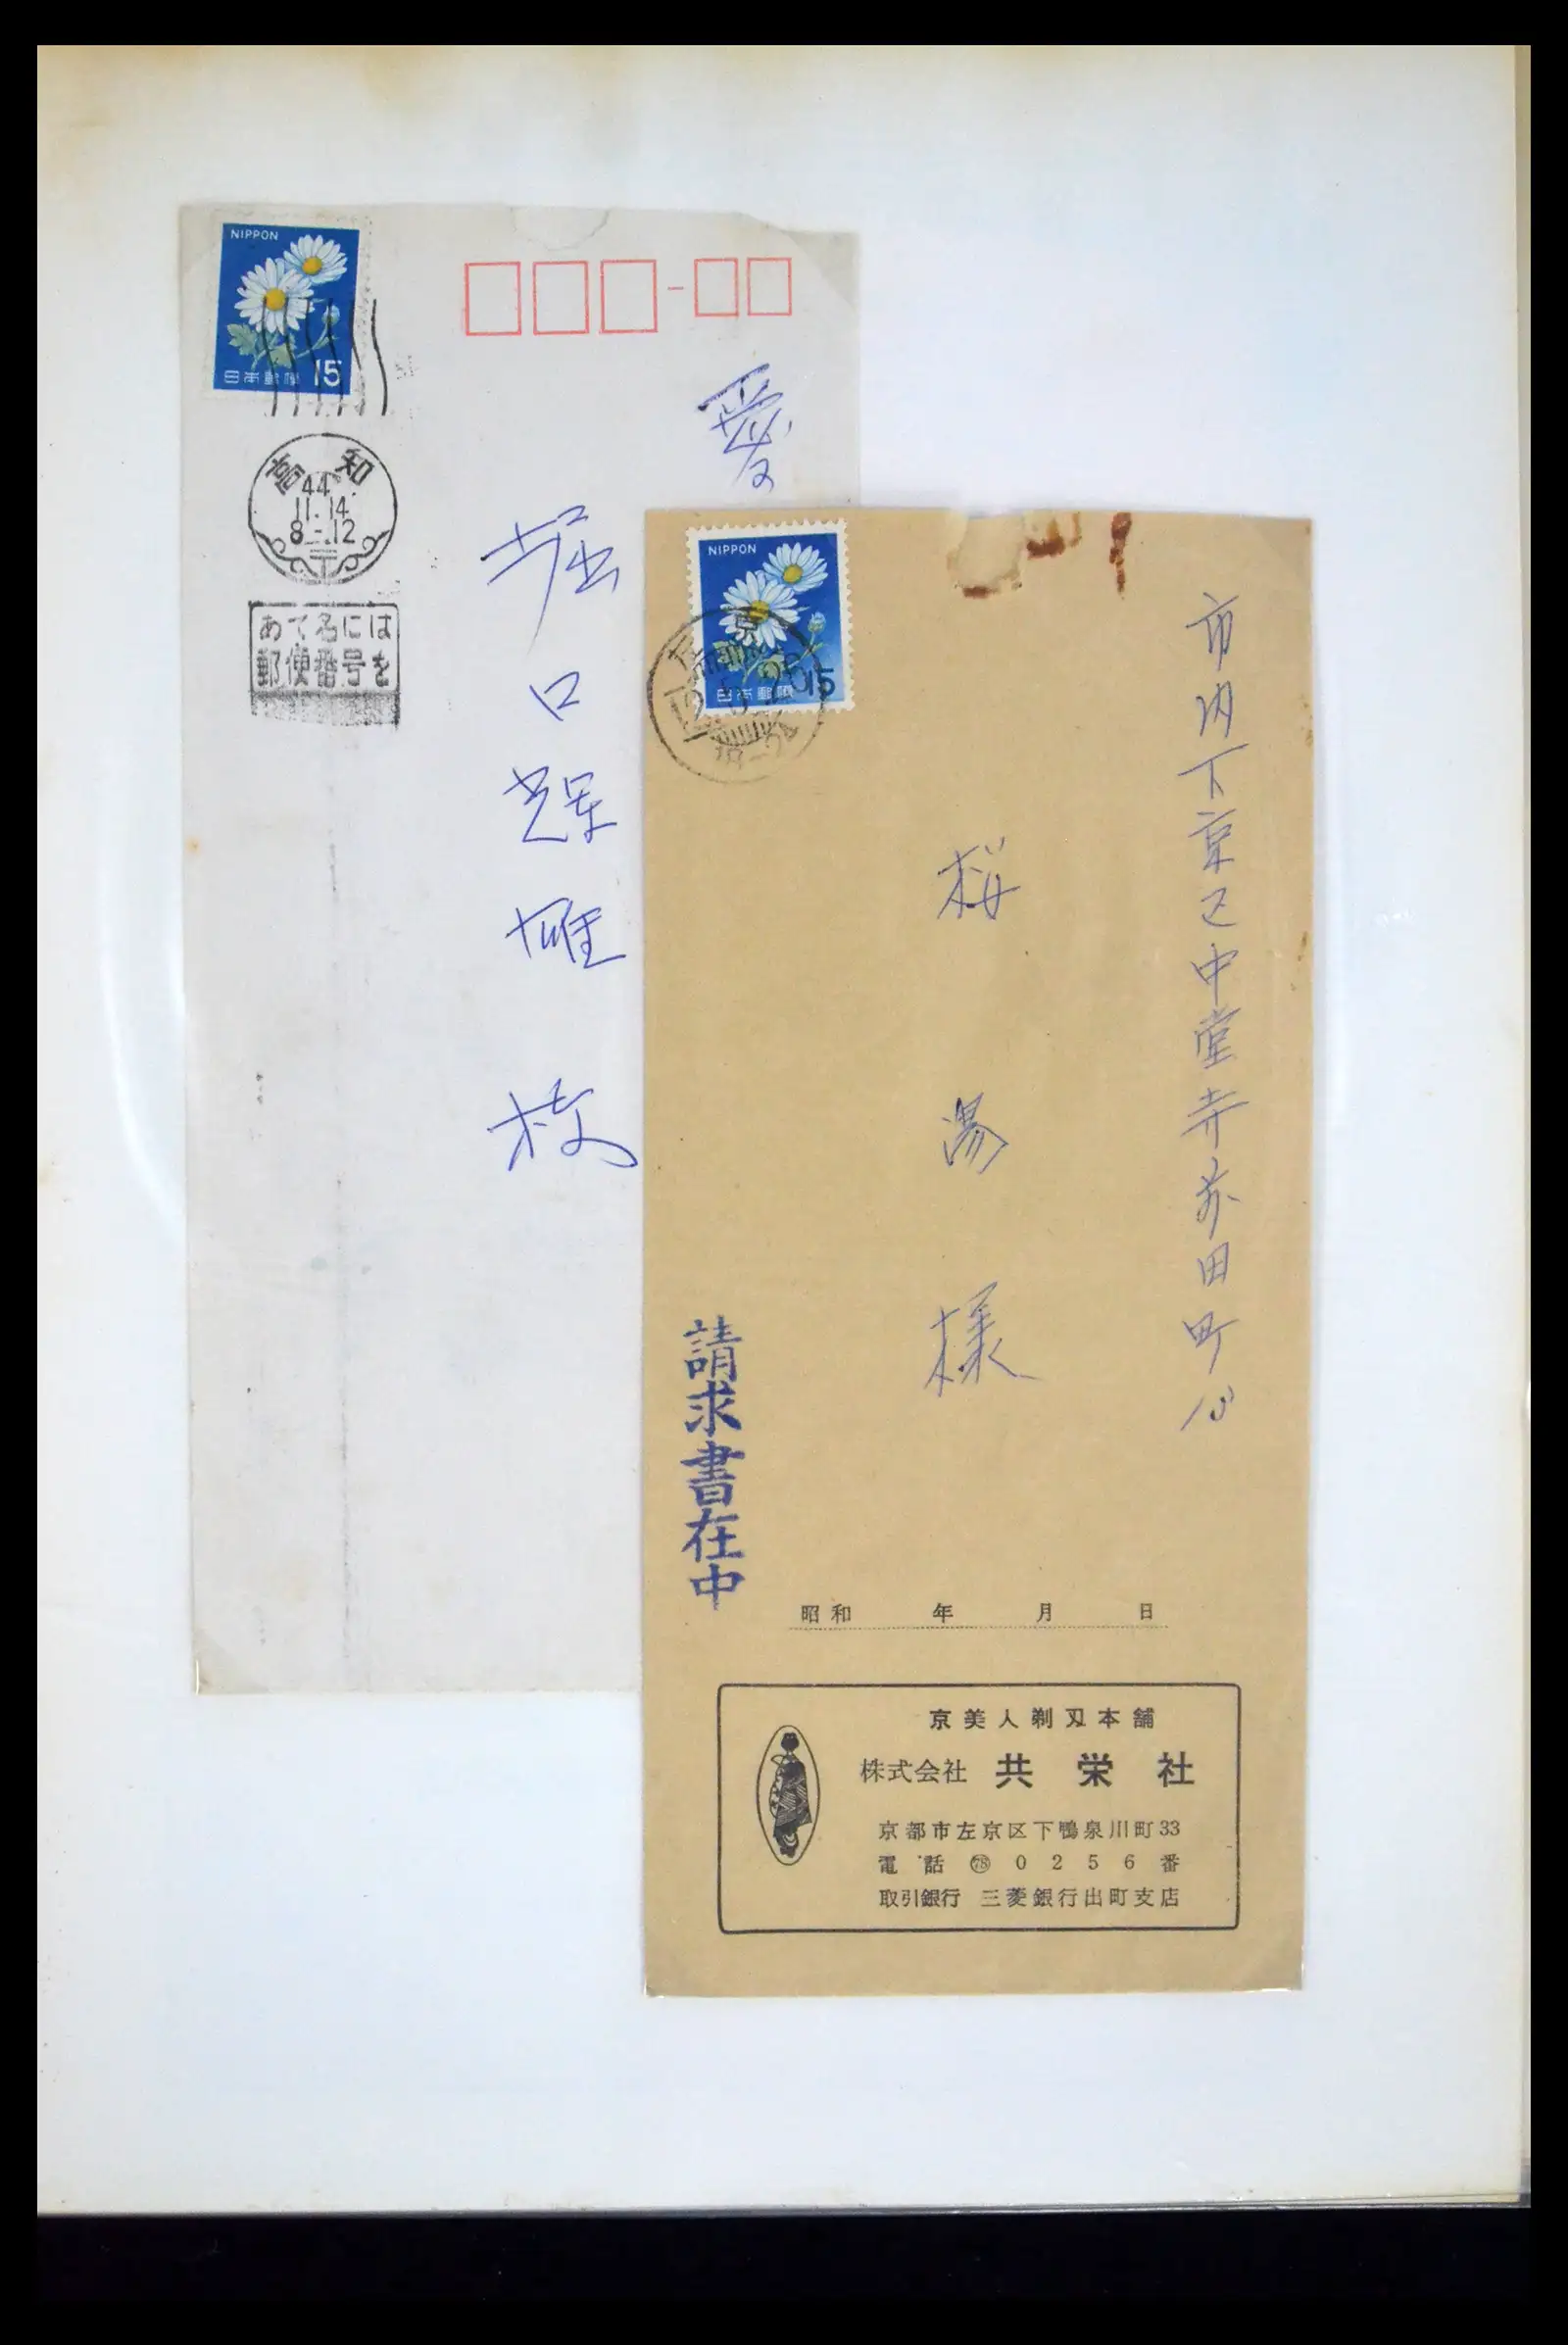 NIPPON
日本郵便 15
高知
44
11.14
8-12
あて名には
郵便番号を
愛
堀口輝雄
NIPPON
日本郵便 15
市内下京区中堂寺前田町18
桜湯様
請求書在中
昭和 年 月 日
京美人剃刃本舗
株式会社 共栄社
京都市左京区下鴨泉川町33
電話 78 0256番
取引銀行 三菱銀行出町支店